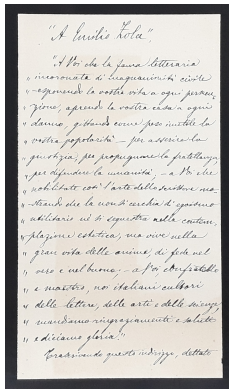 "A Emilio Zola".
"A Voi che la fama letteraria
" incoronata di magnanimità civile
" esponendo la vostra vita a ogni persecu-
" zione, aprendo la vostra casa a ogni
" danno, gittando come peso inutile la
" vostra popolarità – per asserire la
" giustizia, per propugnare la fratellanza,
" per difendere la umanità, – a Voi che
" nobilitate così l'arte dello scrittore mo-
" strando che la non si cerchia d'egoismo
" utilitario nè si sequestra nella contem-
" plazione estetica, ma vive nella
" gran vita delle anime, di fede nel
" vero e nel buono, – a Voi confratello
" e maestro, noi italiani cultori
" delle lettere, delle arti e delle scienze
" mandiamo ringraziamente e saluti
" e diciamo gloria."
Trasmettendo questo indirizzo, dettato